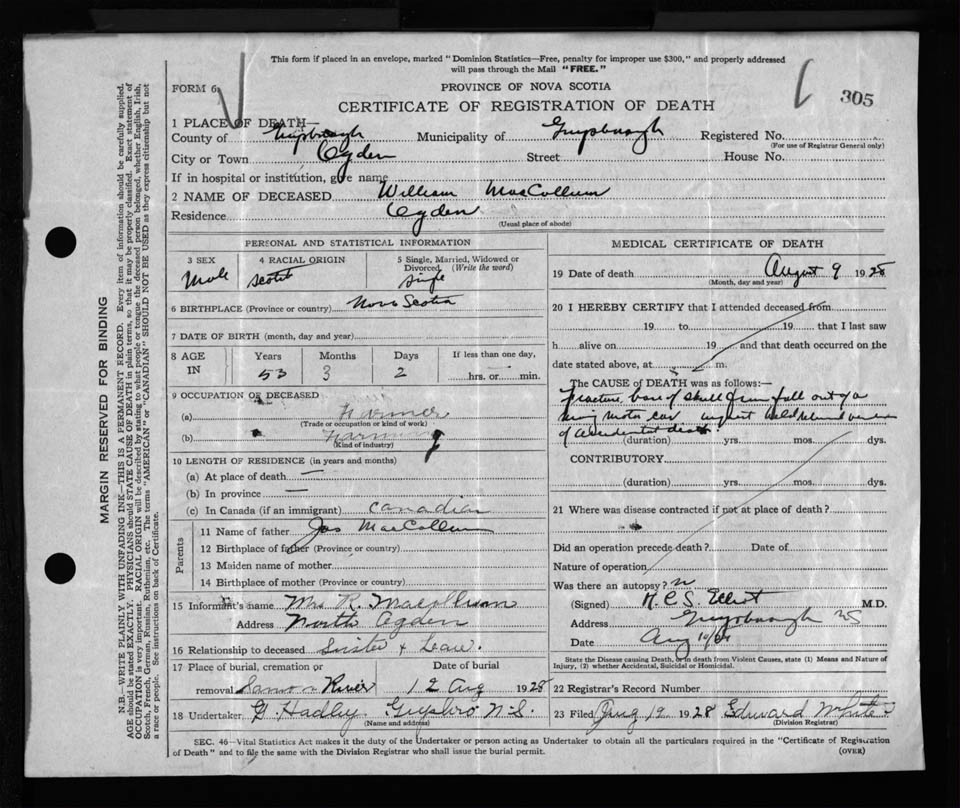 This form if placed in an envelope, marked "Dominion Statistics—Free, penalty for improper use $300," and properly addressed
will pass through the Mail "FREE."
FORM 6
PROVINCE OF NOVA SCOTIA
305
CERTIFICATE OF REGISTRATION OF DEATH
1 PLACE OF DEATH—
County of Guysborough Municipality of Guysborough Registered No.
(For use of Registrar General only)
City or Town Ogden Street House No.
If in hospital or institution, give name
2 NAME OF DECEASED William MacCollum
Residence Ogden
(Usual place of abode)
PERSONAL AND STATISTICAL INFORMATION
3 SEX 4 RACIAL ORIGIN 5 Single, Married, Widowed or
Divorced (Write the word)
Male Scotch Single
6 BIRTHPLACE (Province or country) Nova Scotia
7 DATE OF BIRTH (month, day and year)
8 AGE IN Years Months Days If less than one day,
53 3 2 hrs. or min.
9 OCCUPATION OF DECEASED
(a) Farmer
(Trade or occupation or kind of work)
(b) Farming
(Kind of industry)
10 LENGTH OF RESIDENCE (in years and months)
(a) At place of death —
(b) In province —
(c) In Canada (if an immigrant) Canadian
Parents
11 Name of father Jas MacCollum
12 Birthplace of father (Province or country)
13 Maiden name of mother
14 Birthplace of mother (Province or country)
15 Informant's name Mrs R. MacCollum
Address North Ogden
16 Relationship to deceased Sister & Law.
17 Place of burial, cremation or Date of burial
removal Samon River 12 Aug 1928
18 Undertaker G. Hadley Guysboro N.S.
(Name and address)
MEDICAL CERTIFICATE OF DEATH
19 Date of death August 9 1928
(Month, day and year)
20 I HEREBY CERTIFY that I attended deceased from
19 to 19 that I last saw
h alive on 19 and that death occurred on the
date stated above, at m.
The CAUSE of DEATH was as follows:—
Fracture base of skull from fall out of a
moving motor car inquest held
of accidental death
(duration) yrs. mos. dys.
CONTRIBUTORY
(duration) yrs. mos. dys.
21 Where was disease contracted if not at place of death?
Did an operation precede death? Date of
Nature of operation
Was there an autopsy? n
(Signed) M.D.
Address Guysborough NS
Date Aug 10/28
State the Disease causing Death, or in death from Violent Causes, state (1) Means and Nature of
Injury, (2) whether Accidental, Suicidal or Homicidal.
22 Registrar's Record Number
23 Filed Aug 19 1928 Edward White
(Division Registrar)
SEC. 46—Vital Statistics Act makes it the duty of the Undertaker or person acting as Undertaker to obtain all the particulars required in the "Certificate of Registration
of Death" and to file the same with the Division Registrar who shall issue the burial permit.
(OVER)
MARGIN RESERVED FOR BINDING
N.B.—WRITE PLAINLY WITH UNFADING INK—THIS IS A PERMANENT RECORD. Every item of information should be carefully supplied.
AGE should be stated EXACTLY. PHYSICIANS should STATE CAUSE OF DEATH in plain terms, so that it may be properly classified. Exact statement of
OCCUPATION is very important. RACIAL ORIGIN will be described by stating to what people or tongue the deceased person belonged, whether English, Irish,
Scotch, French, German, Russian, Ruthenian, etc. The terms "AMERICAN" or "CANADIAN" SHOULD NOT BE USED as they express citizenship but not
a race or people. See instructions on back of Certificate.